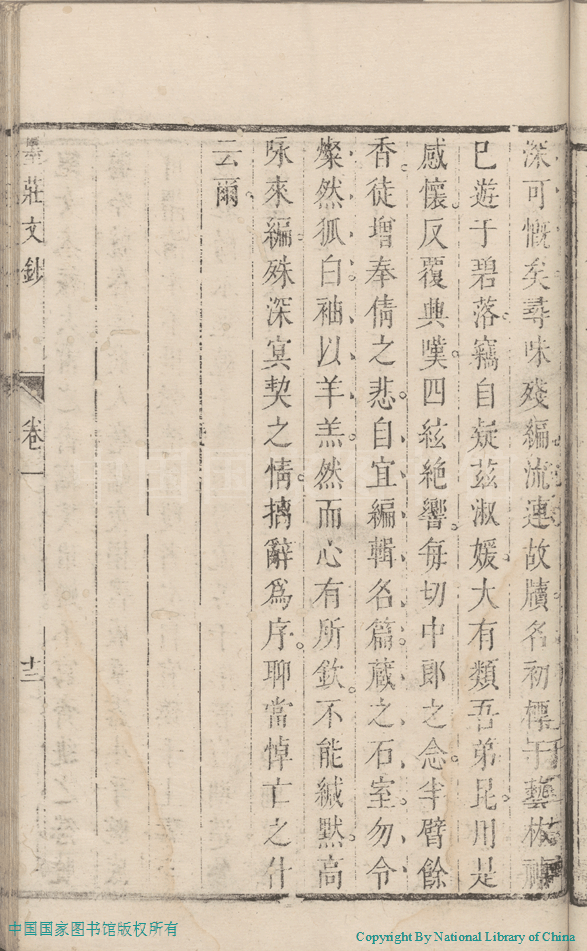 深可慨矣尋味殘編流連故牘名初標于藝林禎
已遊于碧落竊自疑茲淑媛大有類吾弟昆用是
感懷反覆興嘆四絃絶響每切中郎之念半臂餘
香徒增奉倩之悲自宜編輯名篇蔵之石室勿令
燦然狐白袖以羊羔然而心有所欽不能緘默高
咏來編殊深寘契之情摛辭爲序聊當悼亡之什
云爾
莊文鈔
卷一
十二
中国国家图书馆版权所有
Copyright By National Library of China